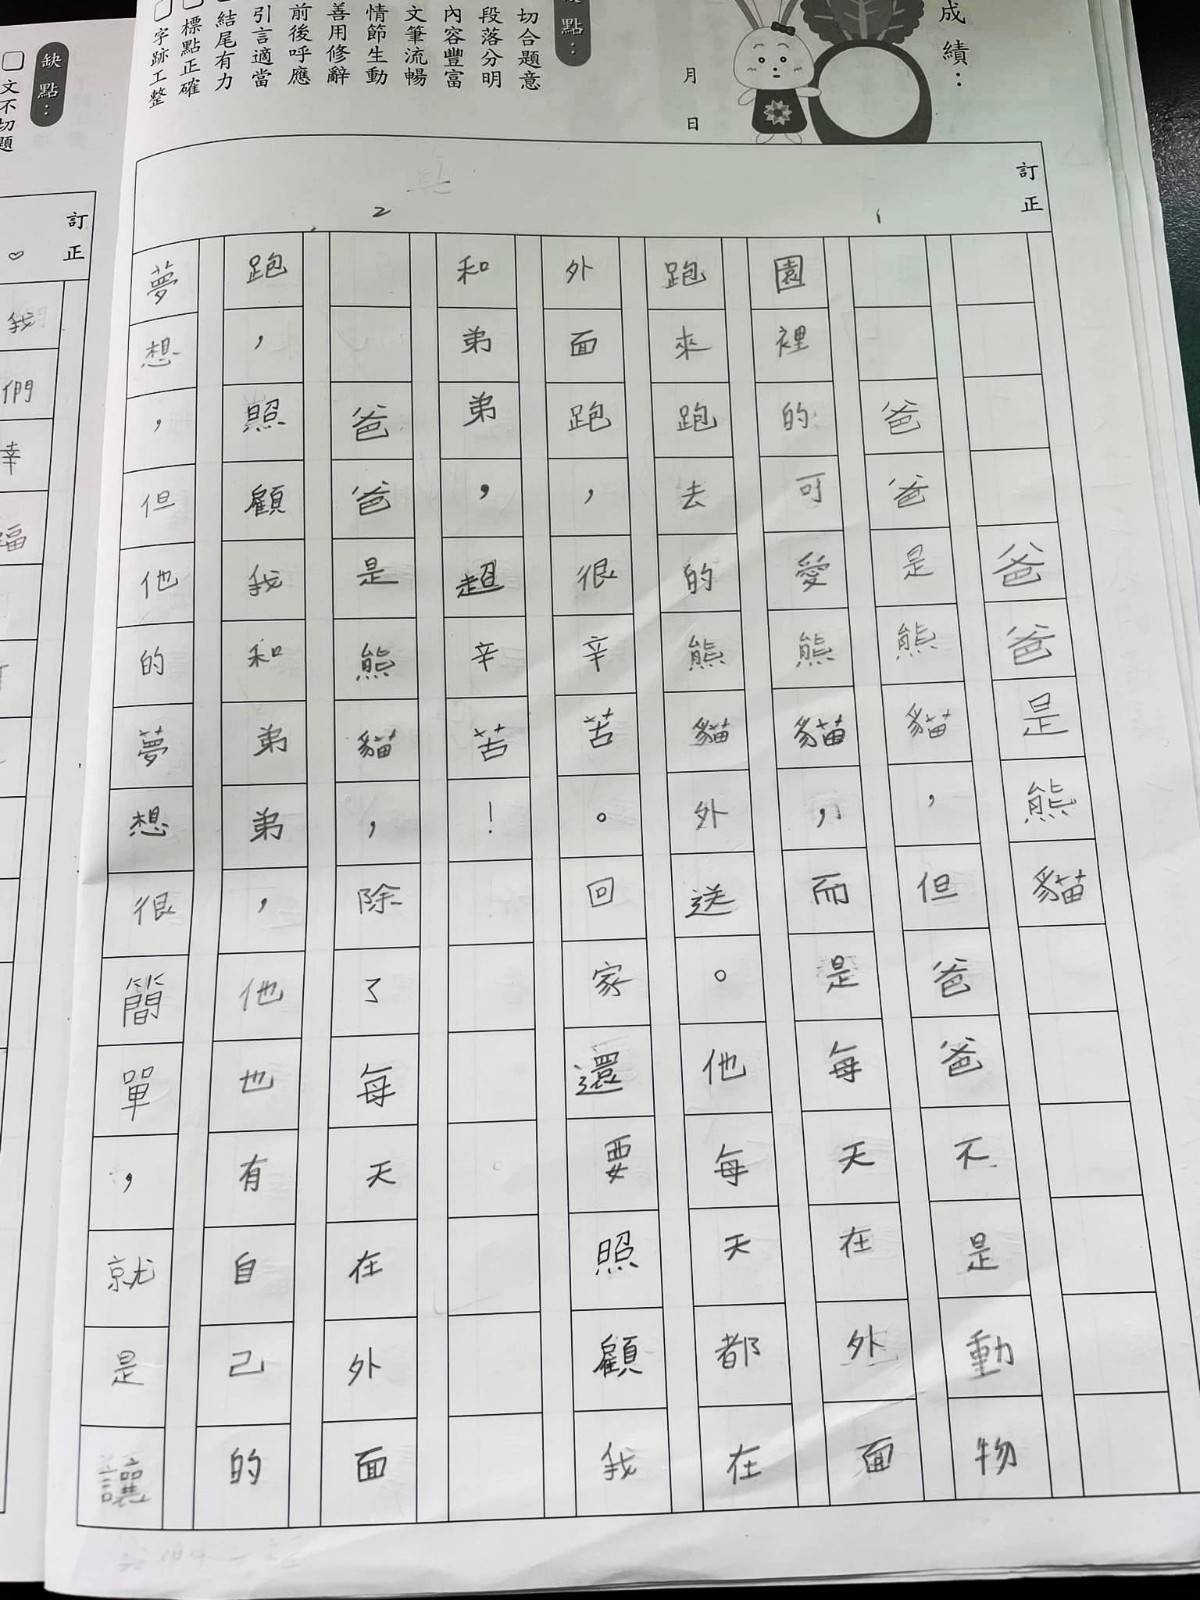 成績：
月　日
點：
切合題意
段落分明
內容豐富
文筆流暢
情節生動
善用修辭
前後呼應
引言適當
結尾有力
標點正確
字跡工整
訂正
1
2
爸爸是熊貓
爸爸是熊貓，但爸爸不是動物
園裡的可愛熊貓，而是每天在外面
跑來跑去的熊貓外送。他每天都在
外面跑，很辛苦。回家還要照顧我
和弟弟，超辛苦！
爸爸是熊貓，除了每天在外面
跑，照顧我和弟弟，他也有自己的
夢想，但他的夢想很簡單，就是讓
缺點：
文不切題
訂正
我們幸福